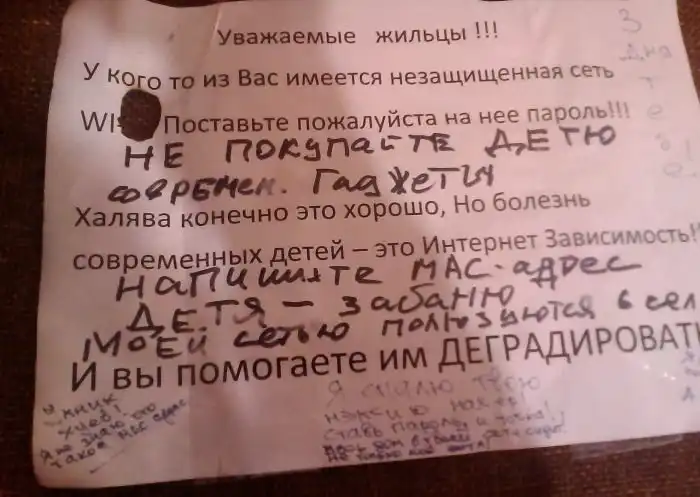 Уважаемые жильцы !!!
У кого то из Вас имеется незащищенная сеть
WI Поставьте пожалуйста на нее пароль!!!
НЕ ПОКУПАЙТЕ ДЕТЮ
СОВРЕМЕН. ГАДЖЕТЫ
Халява конечно это хорошо, Но болезнь
современных детей – это Интернет Зависимость!!
НАПИШИТЕ МАС-адрес
ДЕТЯ – ЗАбАНЮ
МОЕЙ сетью пользуются 6 сел
И вы помогаете им ДЕГРАДИРОВАТЬ
3
дня
т
е
б
е
!
Умник
хлеб!
Я не знаю, что
такое МАС адрес
Я спалю твою
ставь пароль и точка!